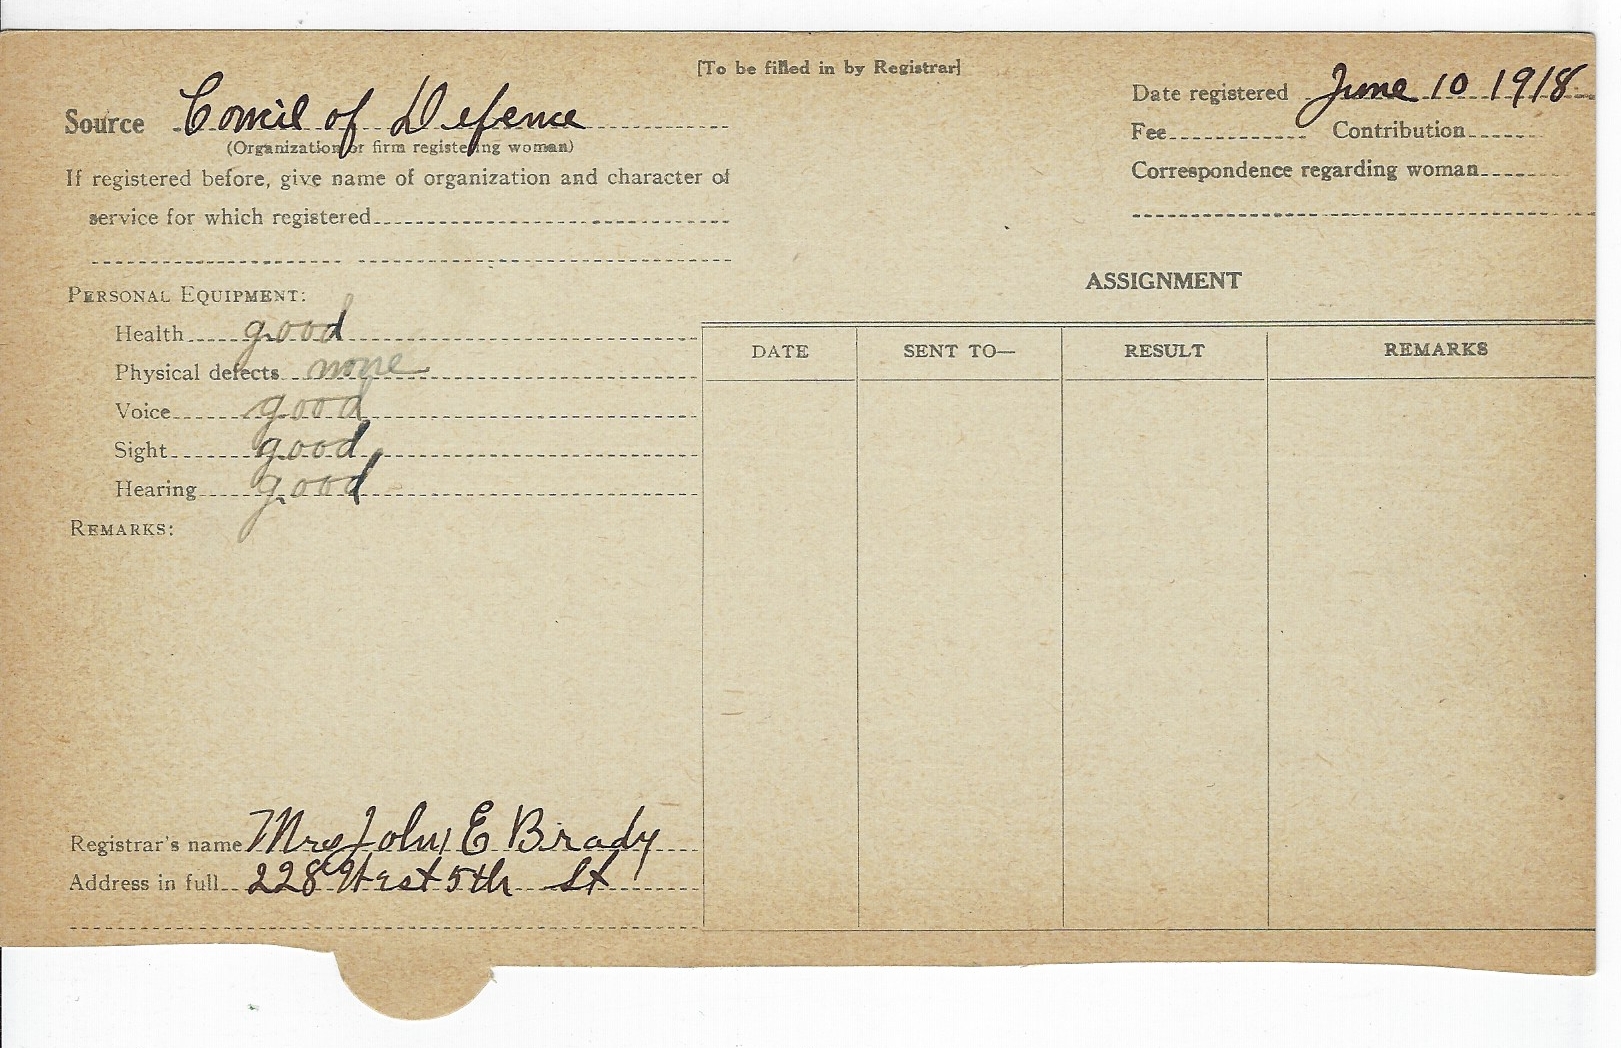 [To be filled in by Registrar]
Source Concil of Defence
(Organization or firm registering woman)
If registered before, give name of organization and character of
service for which registered
Date registered June 10 1918
Fee Contribution
Correspondence regarding woman
PERSONAL EQUIPMENT:
Health good
Physical defects none
Voice good
Sight good
Hearing good
REMARKS:
Registrar's name Mrs John E Brady
Address in full 228 West 5th St
ASSIGNMENT
DATE SENT TO— RESULT REMARKS